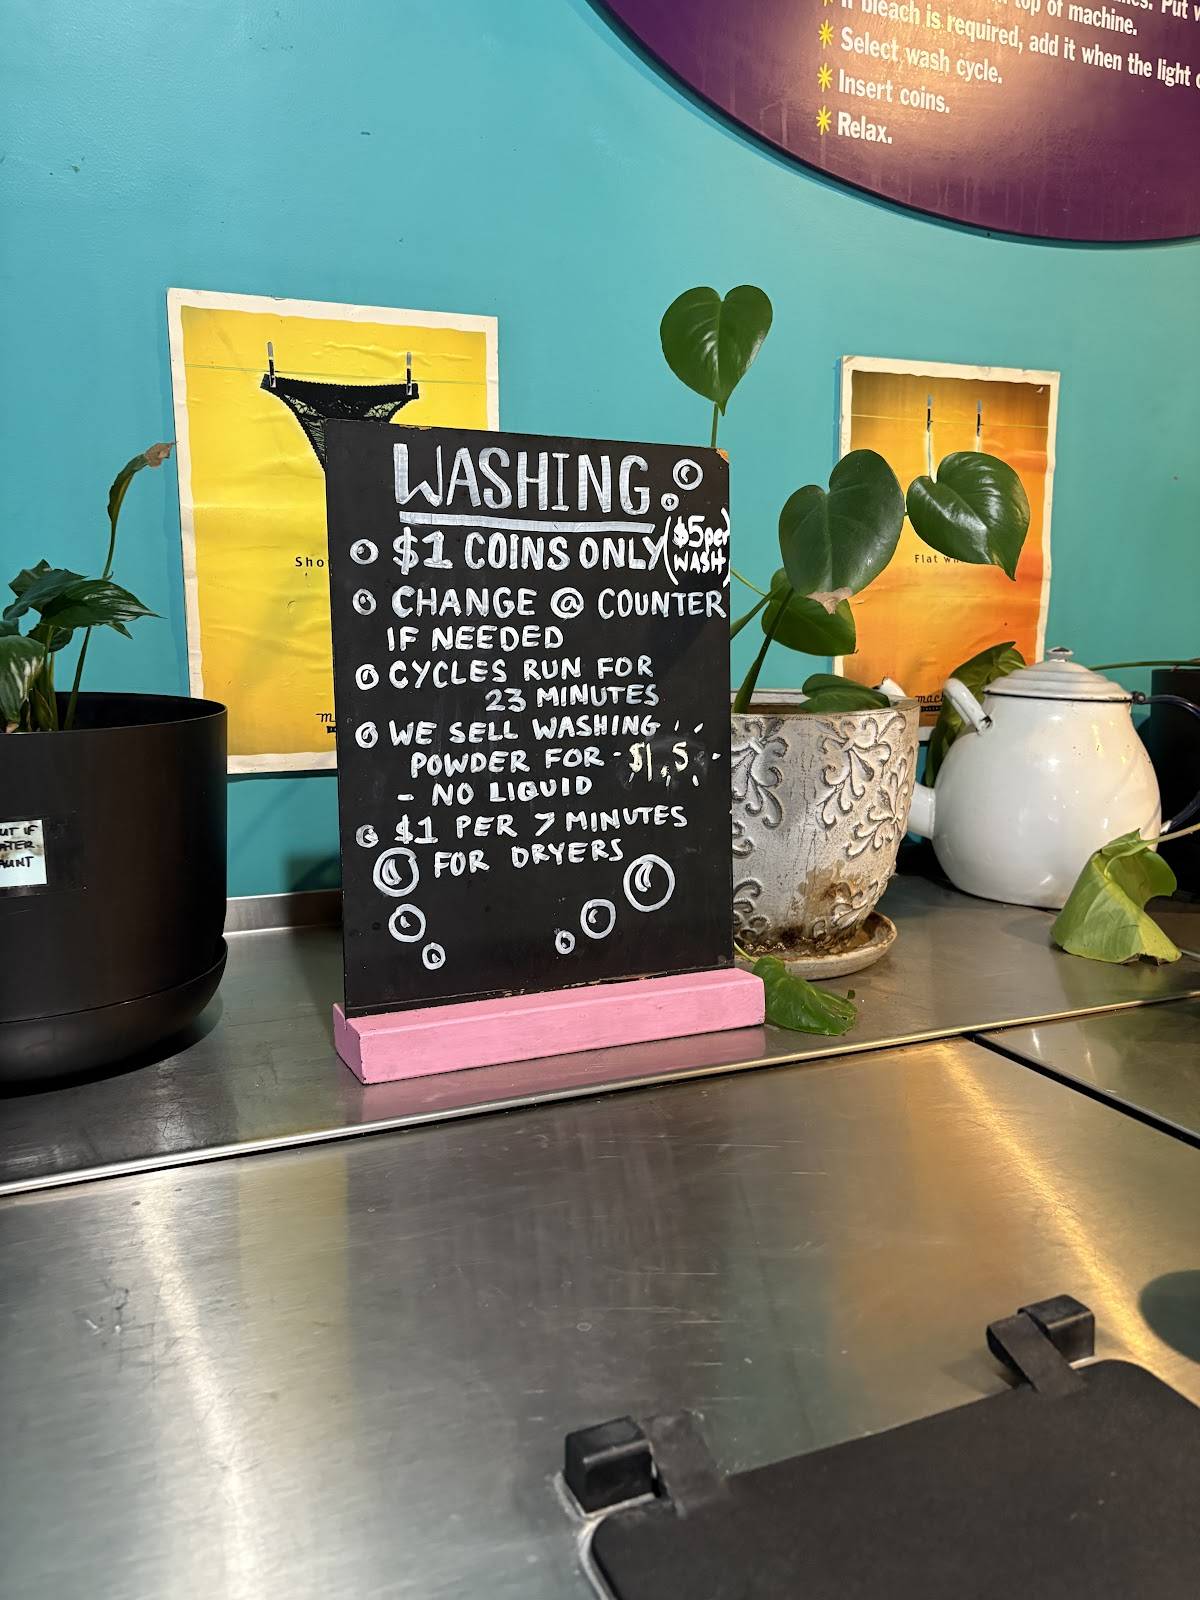 Put
top of machine.
If bleach is required, add it when the light
Select wash cycle.
Insert coins.
Relax.
WASHING
$1 COINS ONLY ($5 per WASH)
CHANGE @ COUNTER
IF NEEDED
CYCLES RUN FOR
23 MINUTES
WE SELL WASHING
POWDER FOR - $1,5 -
- NO LIQUID
$1 PER 7 MINUTES
FOR DRYERS
Sho
Flat